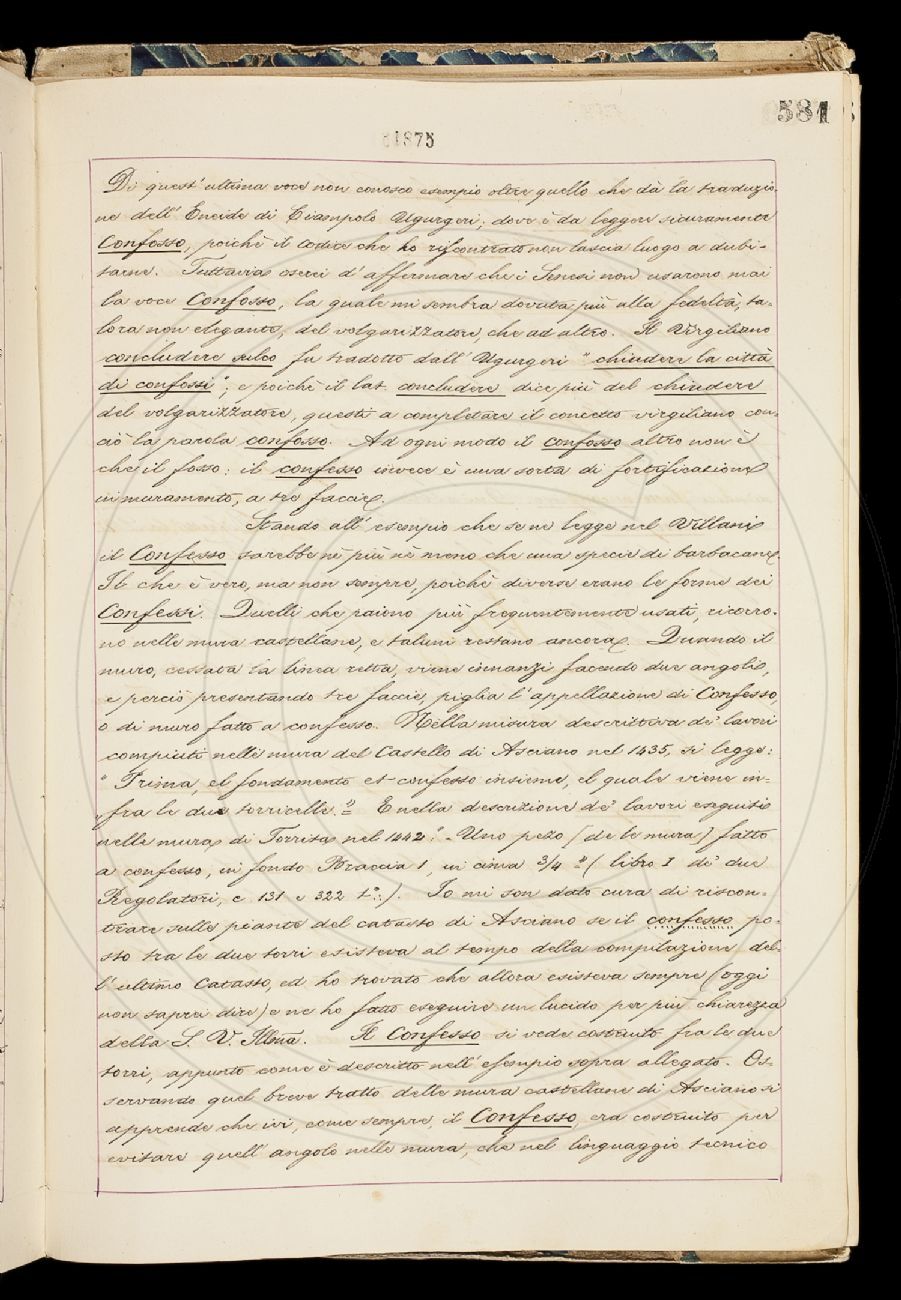 581
1875
Di quest' ultima voce non conosco esempio oltre quello che dà la traduzio-
ne dell' Eneide di Ciampolo Ugurgeri; dove è da leggere sicuramente
Confosso, poichè il codice che ho riscontrato non lascia luogo a dubi-
tarne. Tuttavia oserei d' affermare che i Senesi non usarono mai
la voce Confosso, la quale mi sembra dovuta più alla fedeltà, ta-
lora non elegante, del volgarizzatore, che ad altro. Il Virgiliano
concludere sulco fu tradotto dall' Ugurgeri "chiudere la città
di confossi"; e poichè il lat. concludere dice più del chiudere
del volgarizzatore, questi a completare il concetto virgiliano co-
niò la parola confosso. Ad ogni modo il confosso altro non è
che il fosso: il confesso invece è una sorta di fortificazione
in muramento, a tre faccie.
Stando all' esempio che se ne legge nel Villani
il Confesso sarebbe nè più nè meno che una specie di barbacane.
Il che è vero, ma non sempre, poichè diverse erano le forme dei
Confessi. Quelli che paiono più frequentemente usati, ricorro-
no nelle mura castellane, e taluni restano ancora. Quando il
muro, cessata la linea retta, viene innanzi facendo due angoli,
e perciò presentando tre faccie, piglia l' appellazione di Confesso,
o di muro fatto a confesso. Nella misura descrittiva de' lavori
compiuti nelle mura del Castello di Asciano nel 1435, si legge:
"Prima, el fondamento et confesso insieme, el quale viene in-
"fra le due torricelle." E nella descrizione de' lavori eseguiti
nelle mura di Torrita nel 1442: "Uno pezo [de le mura] fatto
a confesso, in fondo Braccia 1, in cima 3/4" (libro I de' due
Regolatori, c. 131 e 322 t.º). Io mi son dato cura di riscon-
trare sulle piante del catasto di Asciano se il confesso po-
sto tra le due torri esisteva al tempo della compilazione del-
l' ultimo Catasto, ed ho trovato che allora esisteva sempre (oggi
non saprei dire) e ne ho fatto eseguire un lucido per più chiarezza
della S. V. Illma. Il Confesso si vede costruito fra le due
torri, appunto come è descritto nell' esempio sopra allegato. Os-
servando quel breve tratto delle mura castellane di Asciano si
apprende che ivi, come sempre, il Confesso, era costruito per
evitare quell' angolo nelle mura, che nel linguaggio tecnico